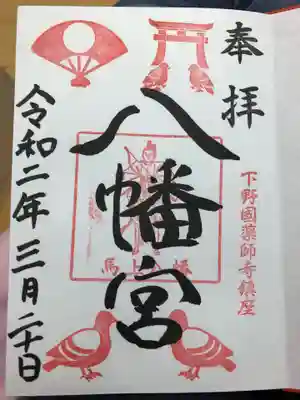 奉拝
下野國薬師寺鎮座
八幡宮
令和二年三月二十日